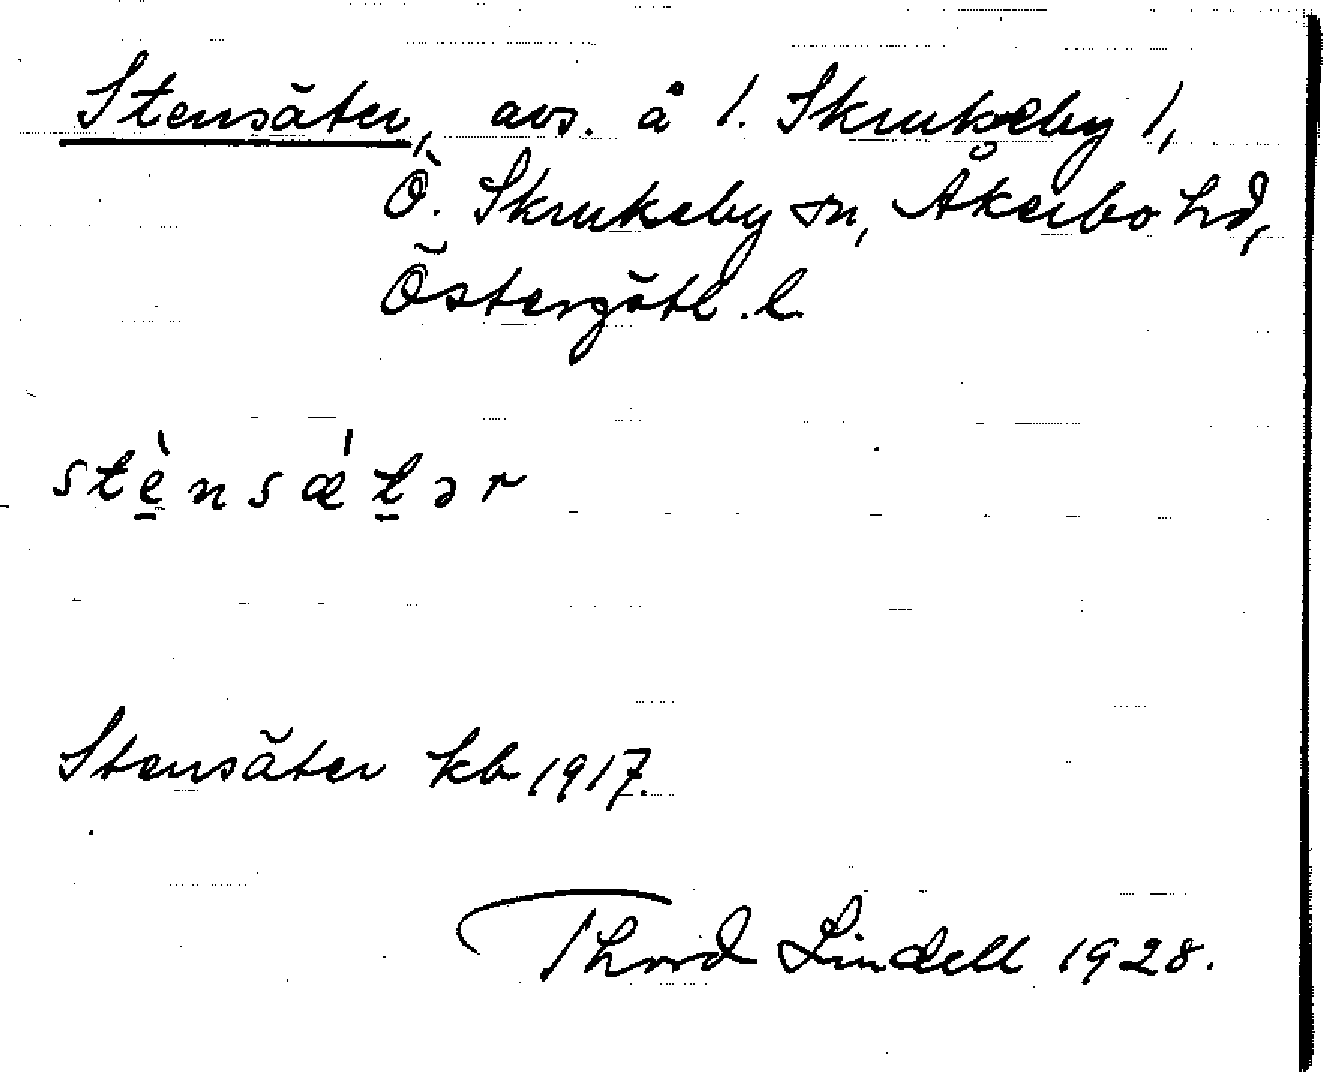 Stensäter, avs. å 1. Skrukeby 1,
Ö. Skrukeby sn, Åkerbo hd,
Östergötl. l.
stè̠nsǽt̠ər
Stensäter kb 1917.
Thord Lindell 1928.